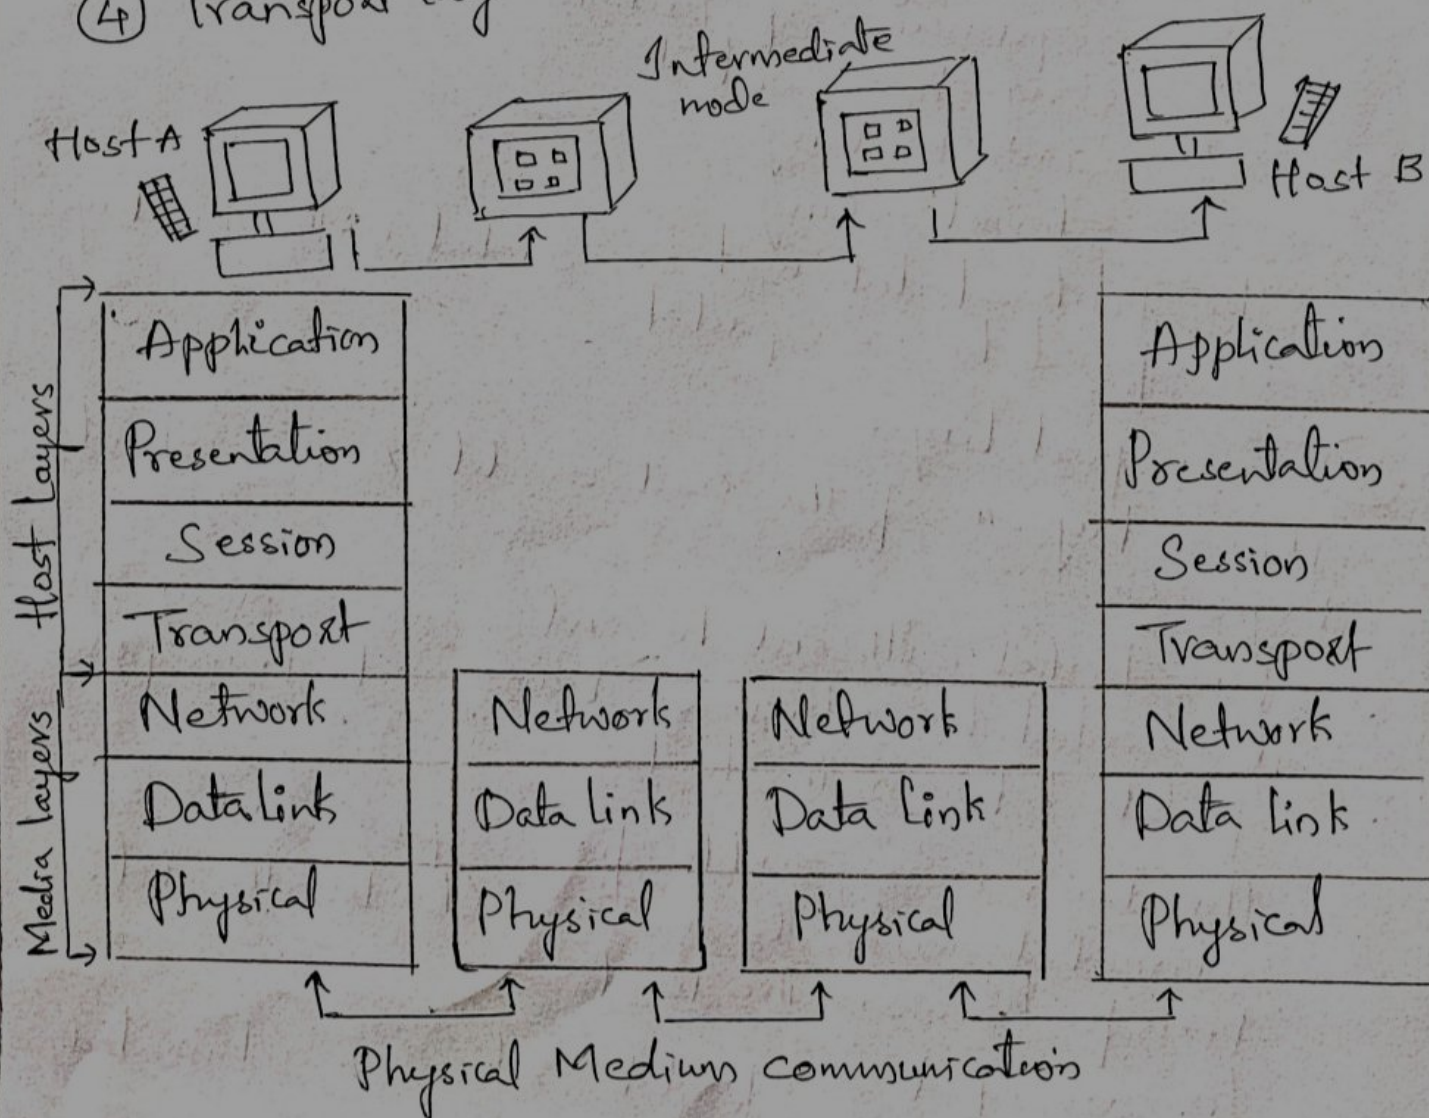 ④ Transport
Intermediate
node
Host A
Host B
Host Layers
Media layers
Application
Presentation
Session
Transport
Network
Data Link
Physical
Network
Data Link
Physical
Network
Data Link
Physical
Application
Presentation
Session
Transport
Network
Data Link
Physical
Physical Medium communication